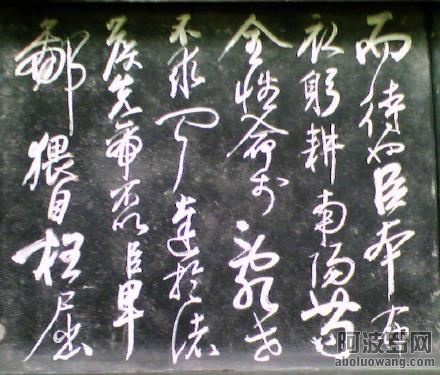 而待也臣本布
衣躬耕南陽苟
全性命於亂世
不求聞達於諸
侯先帝不以臣卑
鄙猥自枉屈
阿波罗网
aboluowang.com